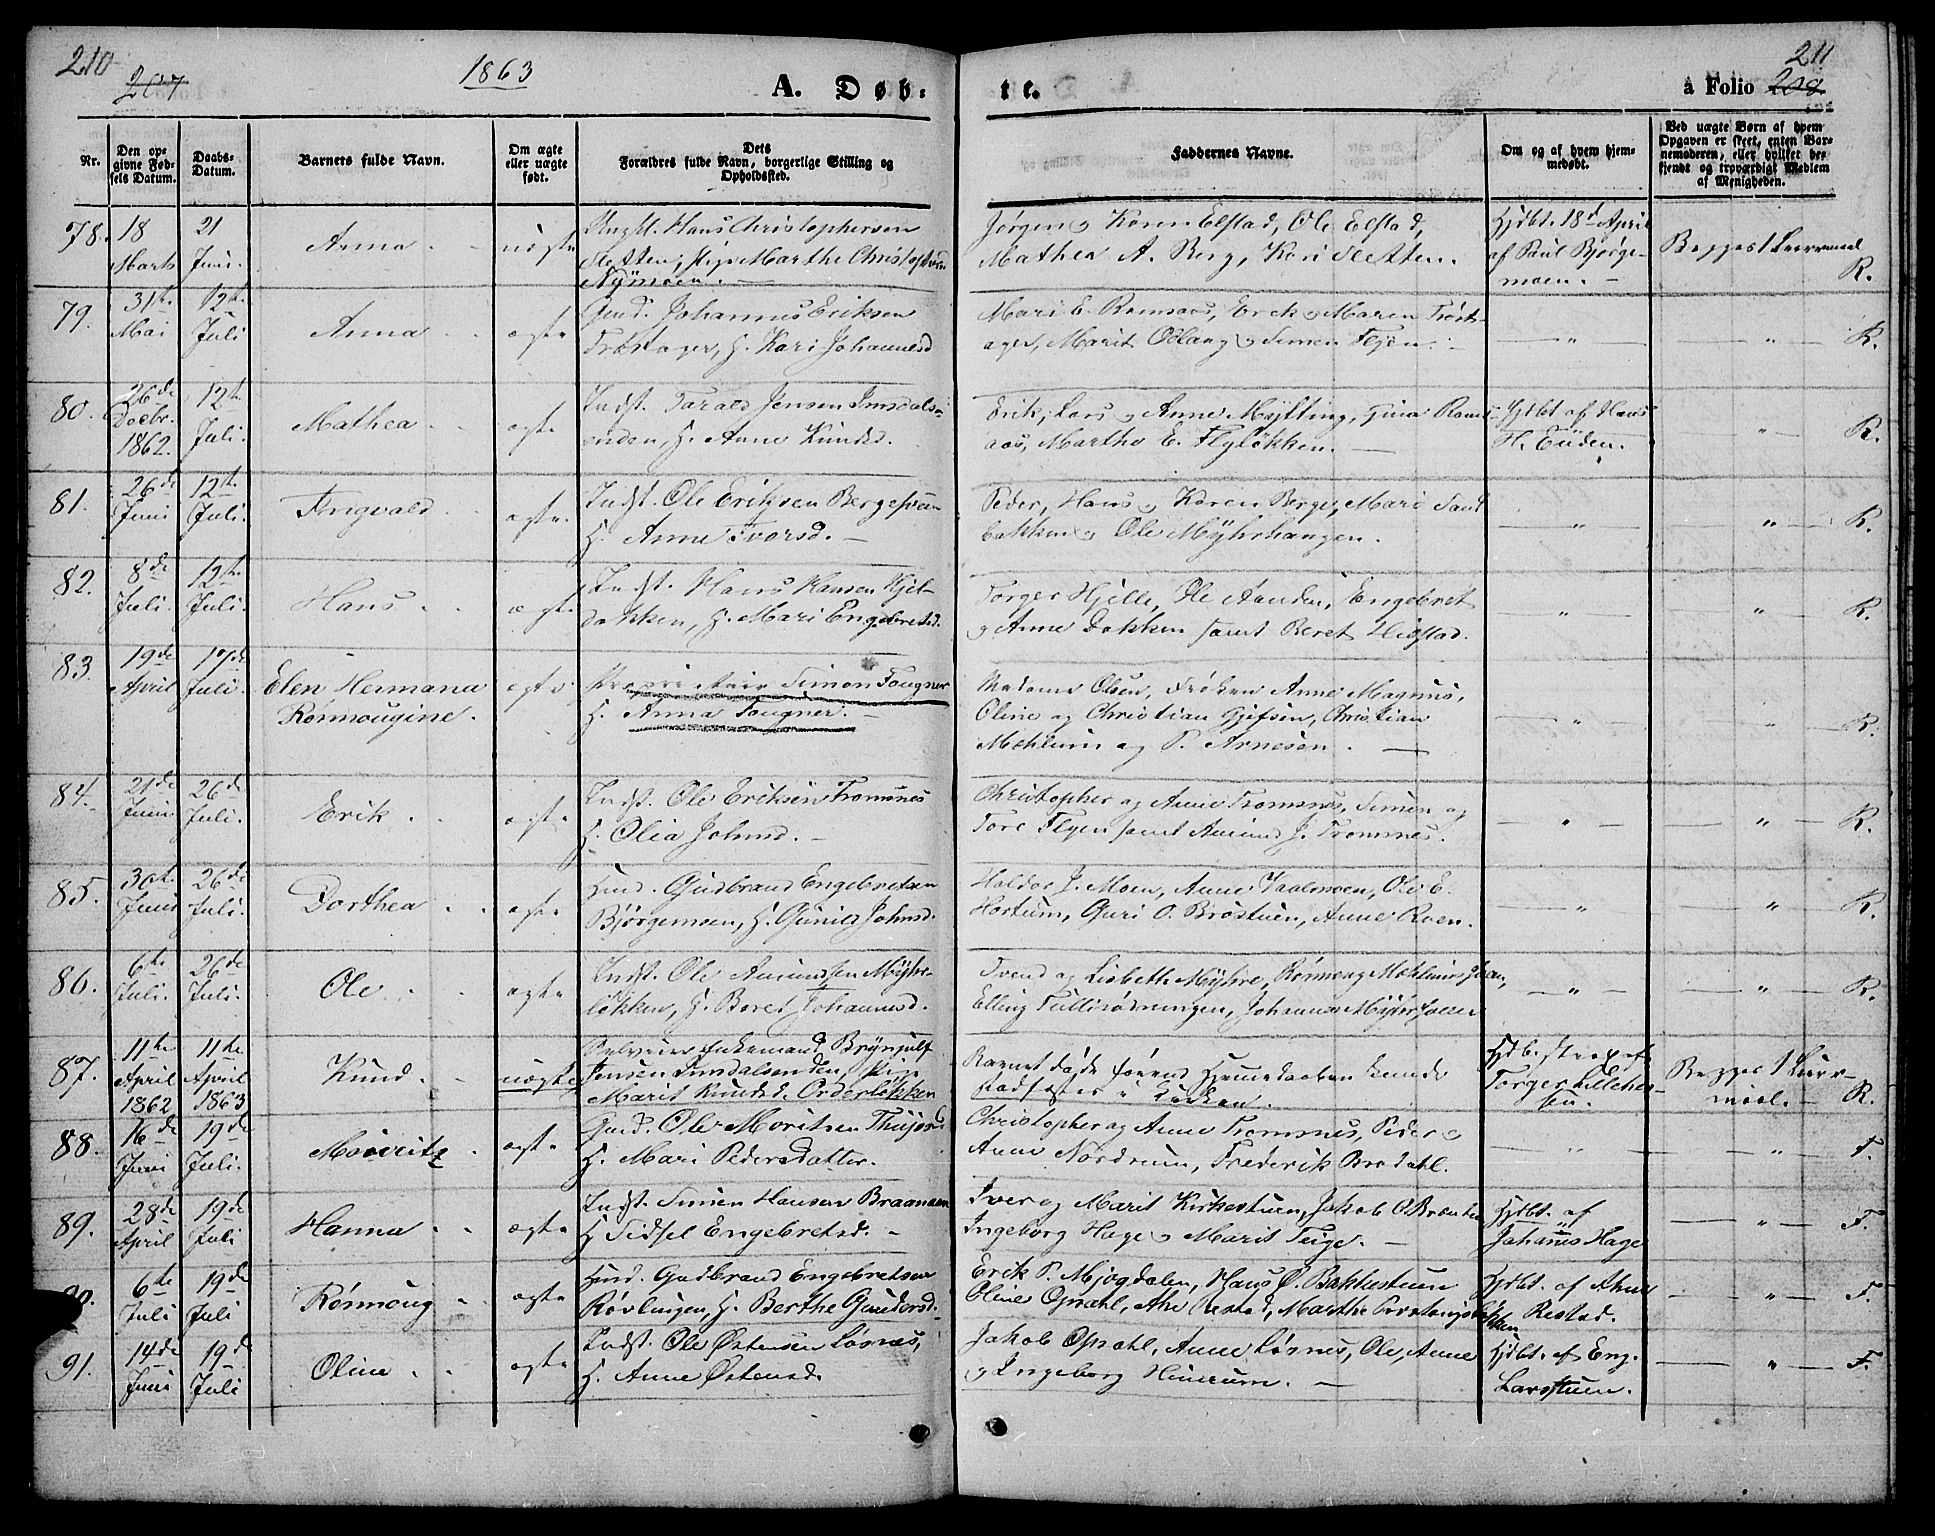 210
207
1863
A. Døb-
te.
211
à Folio 208
Nr.
Den op-
givne Fød-
sels Datum.
Daabs-
Datum.
Barnets fulde Navn.
Om ægte
eller uægte
født.
Dets
Forældres fulde Navn, borgerlige Stilling og
Opholdssted.
Faddernes Navne.
Om og af hvem hjem-
medøbt.
Ved uægte Børn af hvem
Opgaven er skeet, enten Bar-
nemoderen, eller hvilket be-
kjendt og troværdigt Medlem
af Menigheden.
78.
18
Marts
21
Juni.
Anna
uægte
Ungk. Hans Christophersen
Sletten, Pige Marthe Christophersd
Nymoen.
Jørgen og Karen Elstad, Ole Elstad,
Mathea A. Berg, Kari Sletten.
Hjdbt. 18de April
af Paul Bjørge-
moen.
Begges 1 Leiermaal
R.
79.
31te
Mai
12te
Juli
Anna
ægte
Gmd. Johannes Eriksen
Trøstager, H. Kari Johannesd
Mari E. Romsaas, Erek og Maren Trøst-
ager, Marit Odlaug og Simen Flyen.
"
"
R.
80.
26de
Decbr.
1862.
12te
Juli.
Mathea
ægte
Indst. Tarald Jensen Imsdals-
enden, H. Anne Knudsd.
Erik, Lars og Anne Mytting, Gina Roms-
aas, Marthe E. Flyløkken.
Hjdbt af Hans
H. Enden.
"
R.
81.
26de
Juni
12te
Juli.
Ingvald
ægte.
Indst. Ole Eriksen Bergeseen
H. Anne Iversd.
Peder, Hans og Karen Berge, Mari Sand
bakken og Ole Myhrhaugen.
"
"
R.
82.
8de
Juli.
12te
Juli.
Hans
ægte
Indst. Hans Hansen Hjel-
dokken, H. Mari Engebretsd.
Torger Hjelle, Ole Aanden, Engebret
og Anne Dokken samt Beret Hidstad.
"
"
R.
83
19de
April
17de
Juli.
Elen Hermana
Rønnougine.
ægte
Proprietair Simon Fougner
H. Anna Fougner.
Madame Olsen, Frøken Anne Magnus,
Oline og Christian Gjefsen, Christian
Mæhlum og P. Arnesen.
"
"
R.
84.
21de
Juni
26de
Juli.
Erik
ægte
Indst. Ole Eriksen Tromsnes
H. Olia Johnsd.
Christopher og Anne Tromsnes, Simen og
Tore Flyen samt Amund J. Tromsnes.
"
"
R.
85.
30te
Juni
26de
Juli.
Dorthea
ægte
Husd. Gudbrand Engebretsen
Bjørgemoen, H. Gunild Johnsd.
Haldor J. Moen, Anne Vaalmoen, Ole E.
Harstum, Guri O. Brøstuen, Anne Roen.
"
"
R.
86.
6te
Juli.
26de
Juli.
Ole
ægte
Indst. Ole Amundsen Myhre-
løkken, H. Beret Johannesd.
Svend og Lisbeth Myhre, Rønnoug Mæhlumshaugen,
Elling Tullesødningen, Johannes
"
"
R.
87.
11te
April
1862
11te
April
1863
Knud.
uægte
Selveier Enkemand Brynjulf
Jensen Imsdalsenden, Pige
Marit Knudsd. Orderløkken
Barnet døde førend Hjemmedaaben kunde
stadfæstes i Kirken.
Hjdb. strax af
Torger Lillehes-
su.
Begges 1 Leier-
maal.
R.
88.
16de
Juni
19de
Juli.
Mauritz
ægte
Gmd. Ole Moritsen Thujord
H. Mari Pedersdatter.
Christopher og Anne Tromsnes, Peder og
Anne Nordrum, Frederik Brodahl.
"
"
F.
89.
28de
April
19de
Juli
Hanna
ægte
Indst. Simen Hansen Braanaen
H Sidsel Engebretsd.
Iver og Marit Kirkestuen, Jakob O. Braaten
Ingeborg Hage og Marit Teige.
Hjdbt. af
Johannes Hage
"
F.
90.
6te
Juli
19de
Juli
Rønnoug
ægte
Husd. Gudbrand Engebretsen
Røvlingen, H. Berthe Gundersd.
Erik P. Mjogdalen, Hans O. Bakkestuen
Oline Opsahl, Ahe Restad, Marthe Prestengsbakken
Hjdbt. af Ahne
Restad.
"
F.
91.
14de
Juni
19de
Juli
Oline
ægte
Indst. Ole Østensen Løsnes,
H. Anne Østensd.
Jakob Opsahl, Anne Løsnes, Ole, Anne
og Ingeborg Hunerum.
Hjdbt. af Eng.
Larsstuen.
"
F.